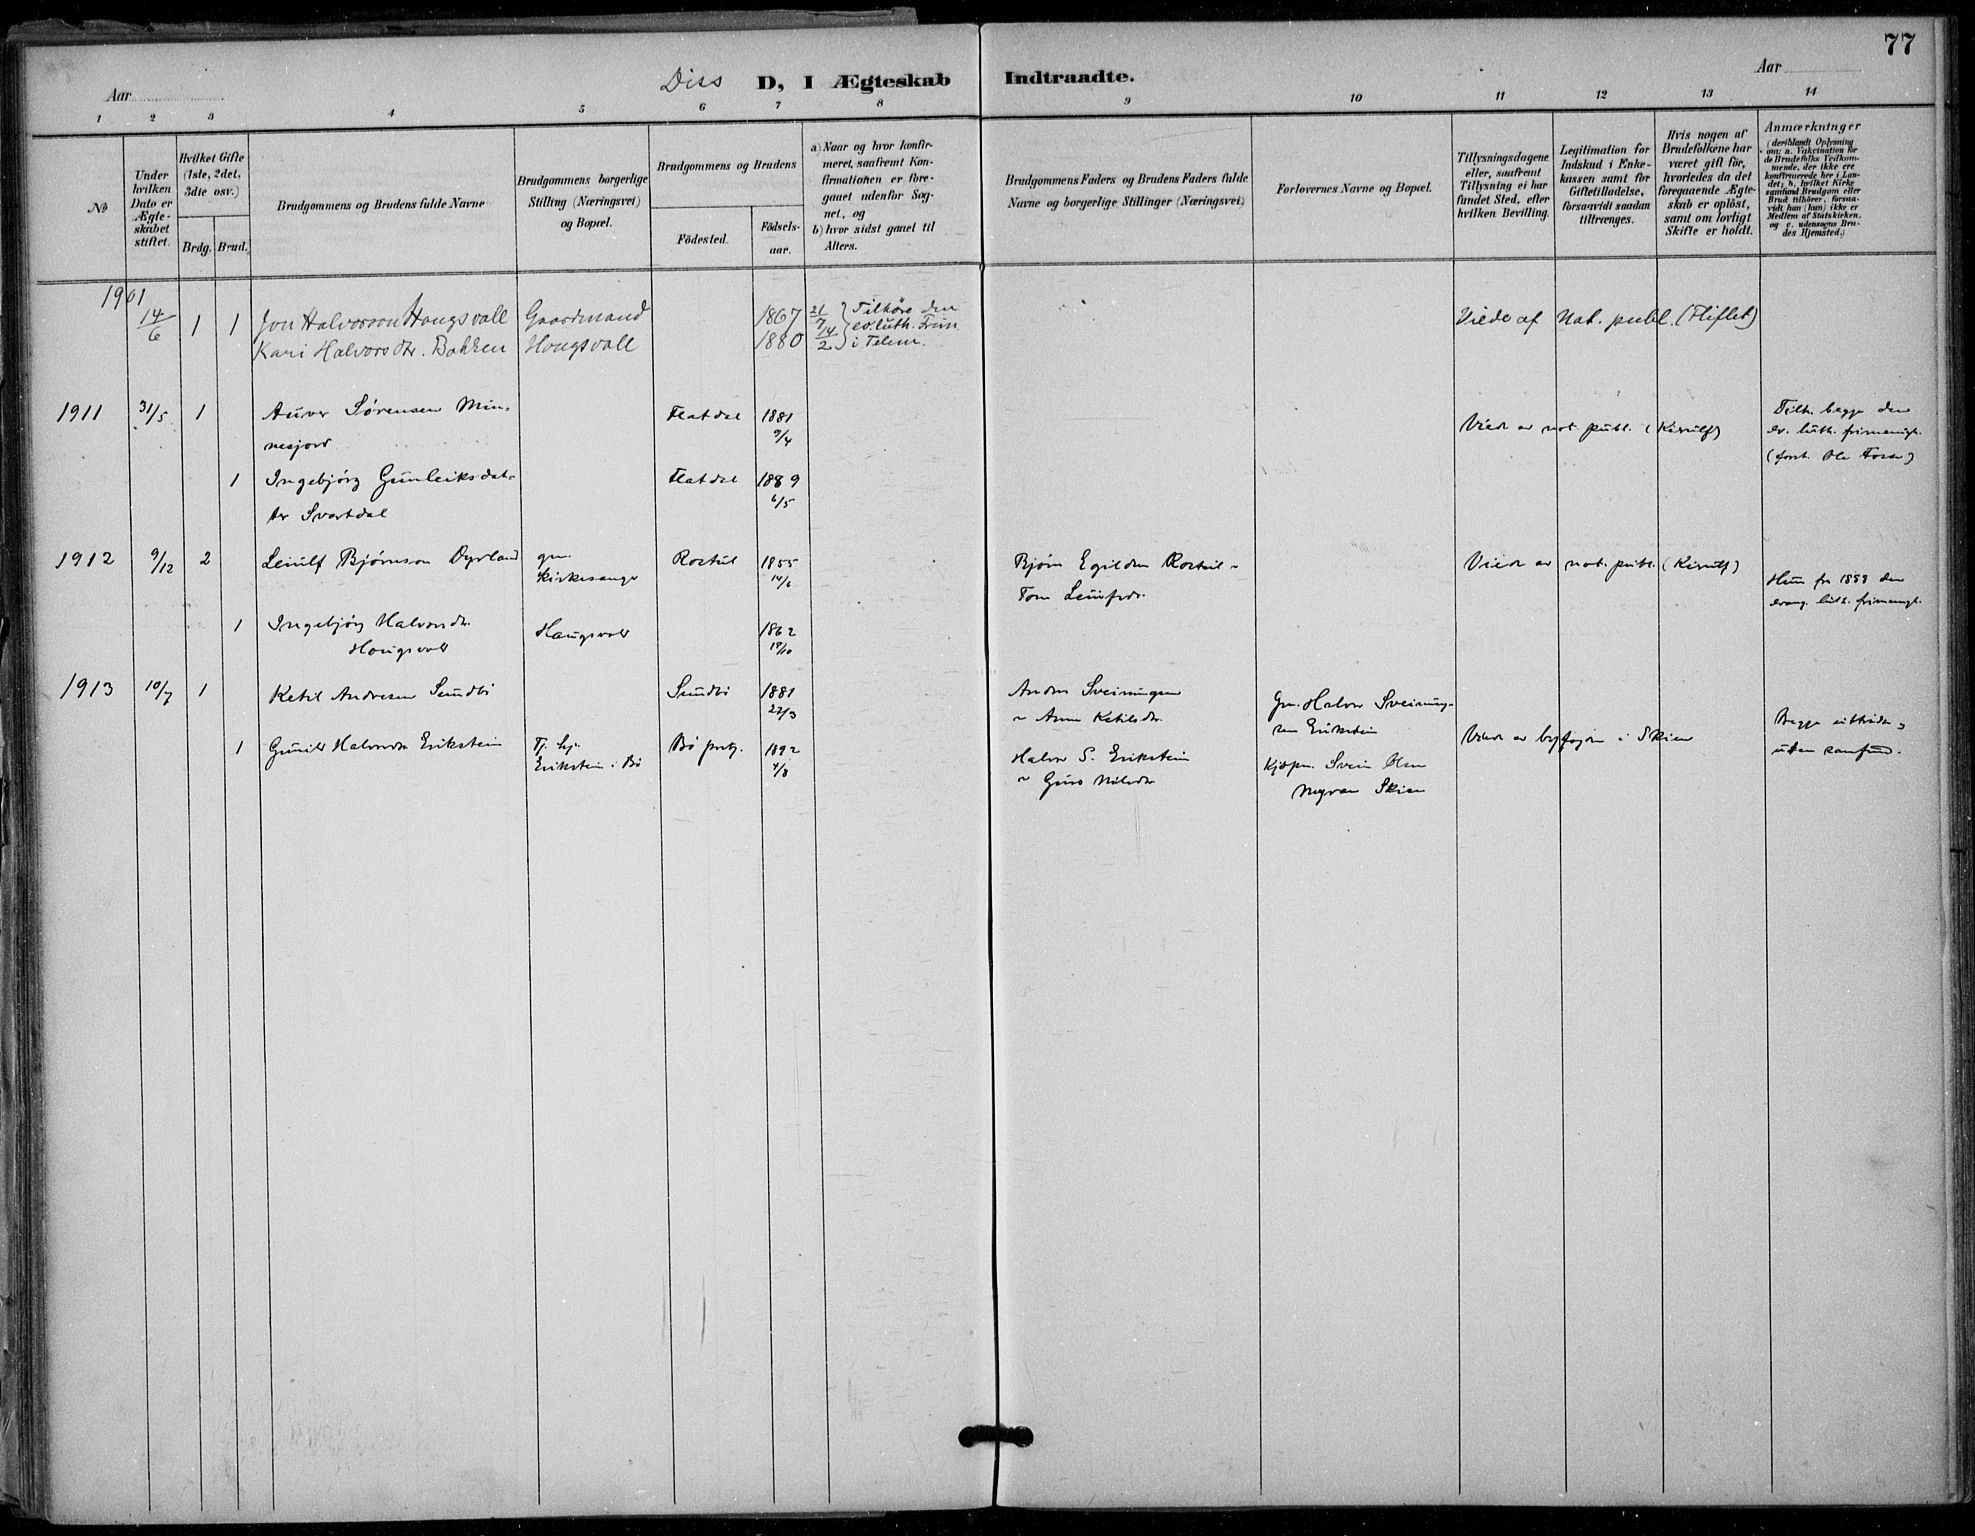 77
Aar
Diss D, I Ægteskab Indtraadte.
Aar
1 2 3 4 5 6 7 8 9 10 11 12 13 14
№
Under
hvilken
Dato er
Ægte-
skabet
stiftet.
Hvilket Gifte
(1ste, 2det,
3die osv.)
Brdg. Brud.
Brudgommens og Brudens fulde Navne
Brudgommens borgerlige
Stilling (Næringsvei)
og Bopæl.
Brudgommens og Brudens
Födested.
Födsels-
aar.
a) Naar og hvor konfir-
meret, saafremt Kon-
firmationen er fore-
gaaet udenfor Sog-
net, og
b) hvor sidst gaaet til
Alters.
Brudgommens Faders og Brudens Faders fulde
Navne og borgerlige Stillinger (Næringsvei)
Forlovernes Navne og Bopæl.
Tillysningsdagene
eller, saafremt
Tillysning ei har
fundet Sted, efter
hvilken Bevilling.
Legitimation for
Indskud i Enke-
kassen samt for
Giftetilladelse,
forsaavidt saadan
tiltrænges.
Hvis nogen af
Brudefolkene har
været gift för,
hvorledes da det
foregaaende Ægte-
skab er oplöst,
samt om lovligt
Skifte er holdt.
Anmærkninger
(deriblandt Oplysning
om: a. Vakcination for
de Brudefolks Vedkom-
mende, der ikke ere
konfirmerede her i Lan-
det; b. hvilket Kirke
samfund Brudgom eller
Brud tilhörer, forsaa-
vidt han (hun) ikke er
Medlem af Statskirken,
og c. udensogns Bru-
des Hjemsted.)
1901
14/6 1 1 Jon Halvorson Haugsvall Gaardmand 1867 21/7 Tilhöre den
Kari Halvorsdtr. Bakken Hougsvall 1880 14/2 ev. luth. Frim.
i Telem.
Viede af Not. publ. (Fliflet)
1911 31/5 1 Auver Sørensen Min-
nesjord
Flatdal 1881
9/4
Viede av not. publ. (Kierulf)
Tilh. begge den
ev. luth. frimenigh.
(forst. Ole Fosse)
1 Ingebjørg Gunleiksdat-
ter Svartdal
Flatdal 1889
6/5
1912 9/12 2 Leiulf Bjørnson Dyrland gm.
kirkesanger
Roetul 1855
14/6
Bjørn Egilden Roetul
Tone Leiulfsdr.
Viede av not. publ. (Kierulf)
Hun fr 1888 den
evang. luth. frimenigh.
1 Ingebjørg Halvorsdr.
Haugsvoll
Haugsvoll
1862
19/10
1913 10/7 1 Ketil Andresen Sundbi
Sundbi 1881
27/3
Anders Sveinungsen
Anne Ketilsdr.
Gm. Halvor Sveinung-
sen Erikstein
1 Gunild Halvorsdr Erikstein Tj. hj.
Erikstein, Bø
Bø prstg. 1892
4/8
Halvor S. Erikstein
Guro Nilsdr
Kjøpm. Svein Olsen
Skien
Viede av byfogden i Skien
Begge uttraadte,
uden samfund.